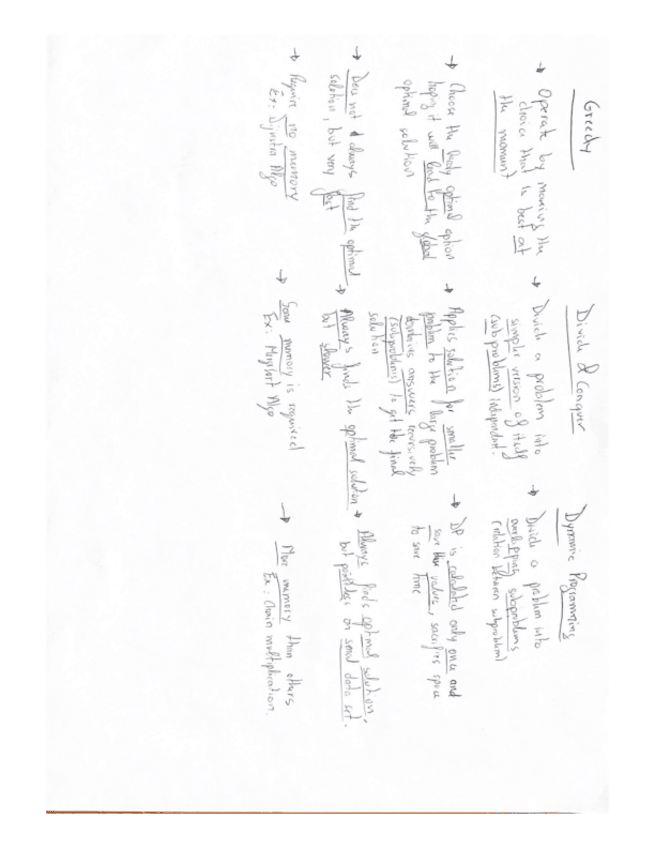 Greedy
→ Operate by making the
choice that is best at
the moment
→ Choose the localy optimal option
hoping it will lead to the global
optimal solution
→ Does not always find the optimal
solution, but very fast
→ Require no memory
Ex: Dijkstra Algo
Divide & Conquer
→ Divide a problem into
simpler version of itself
(subproblems) independant.
→ Applies solution for smaller
problem to the large problem
answers recursively
(subproblems) to get the final
solution
→ Always finds the optimal solution
but slower
→ Some memory is required
Ex: Mergesort Algo
Dynamic Programming
→ Divide a problem into
overlapping subproblems
(relation between subproblem)
→ DP is calculated only once and
save values, sacrifies space
to save time
→ Always finds optimal solution,
but pointless on small data set.
→ More memory than others
Ex: Chain multiplication.